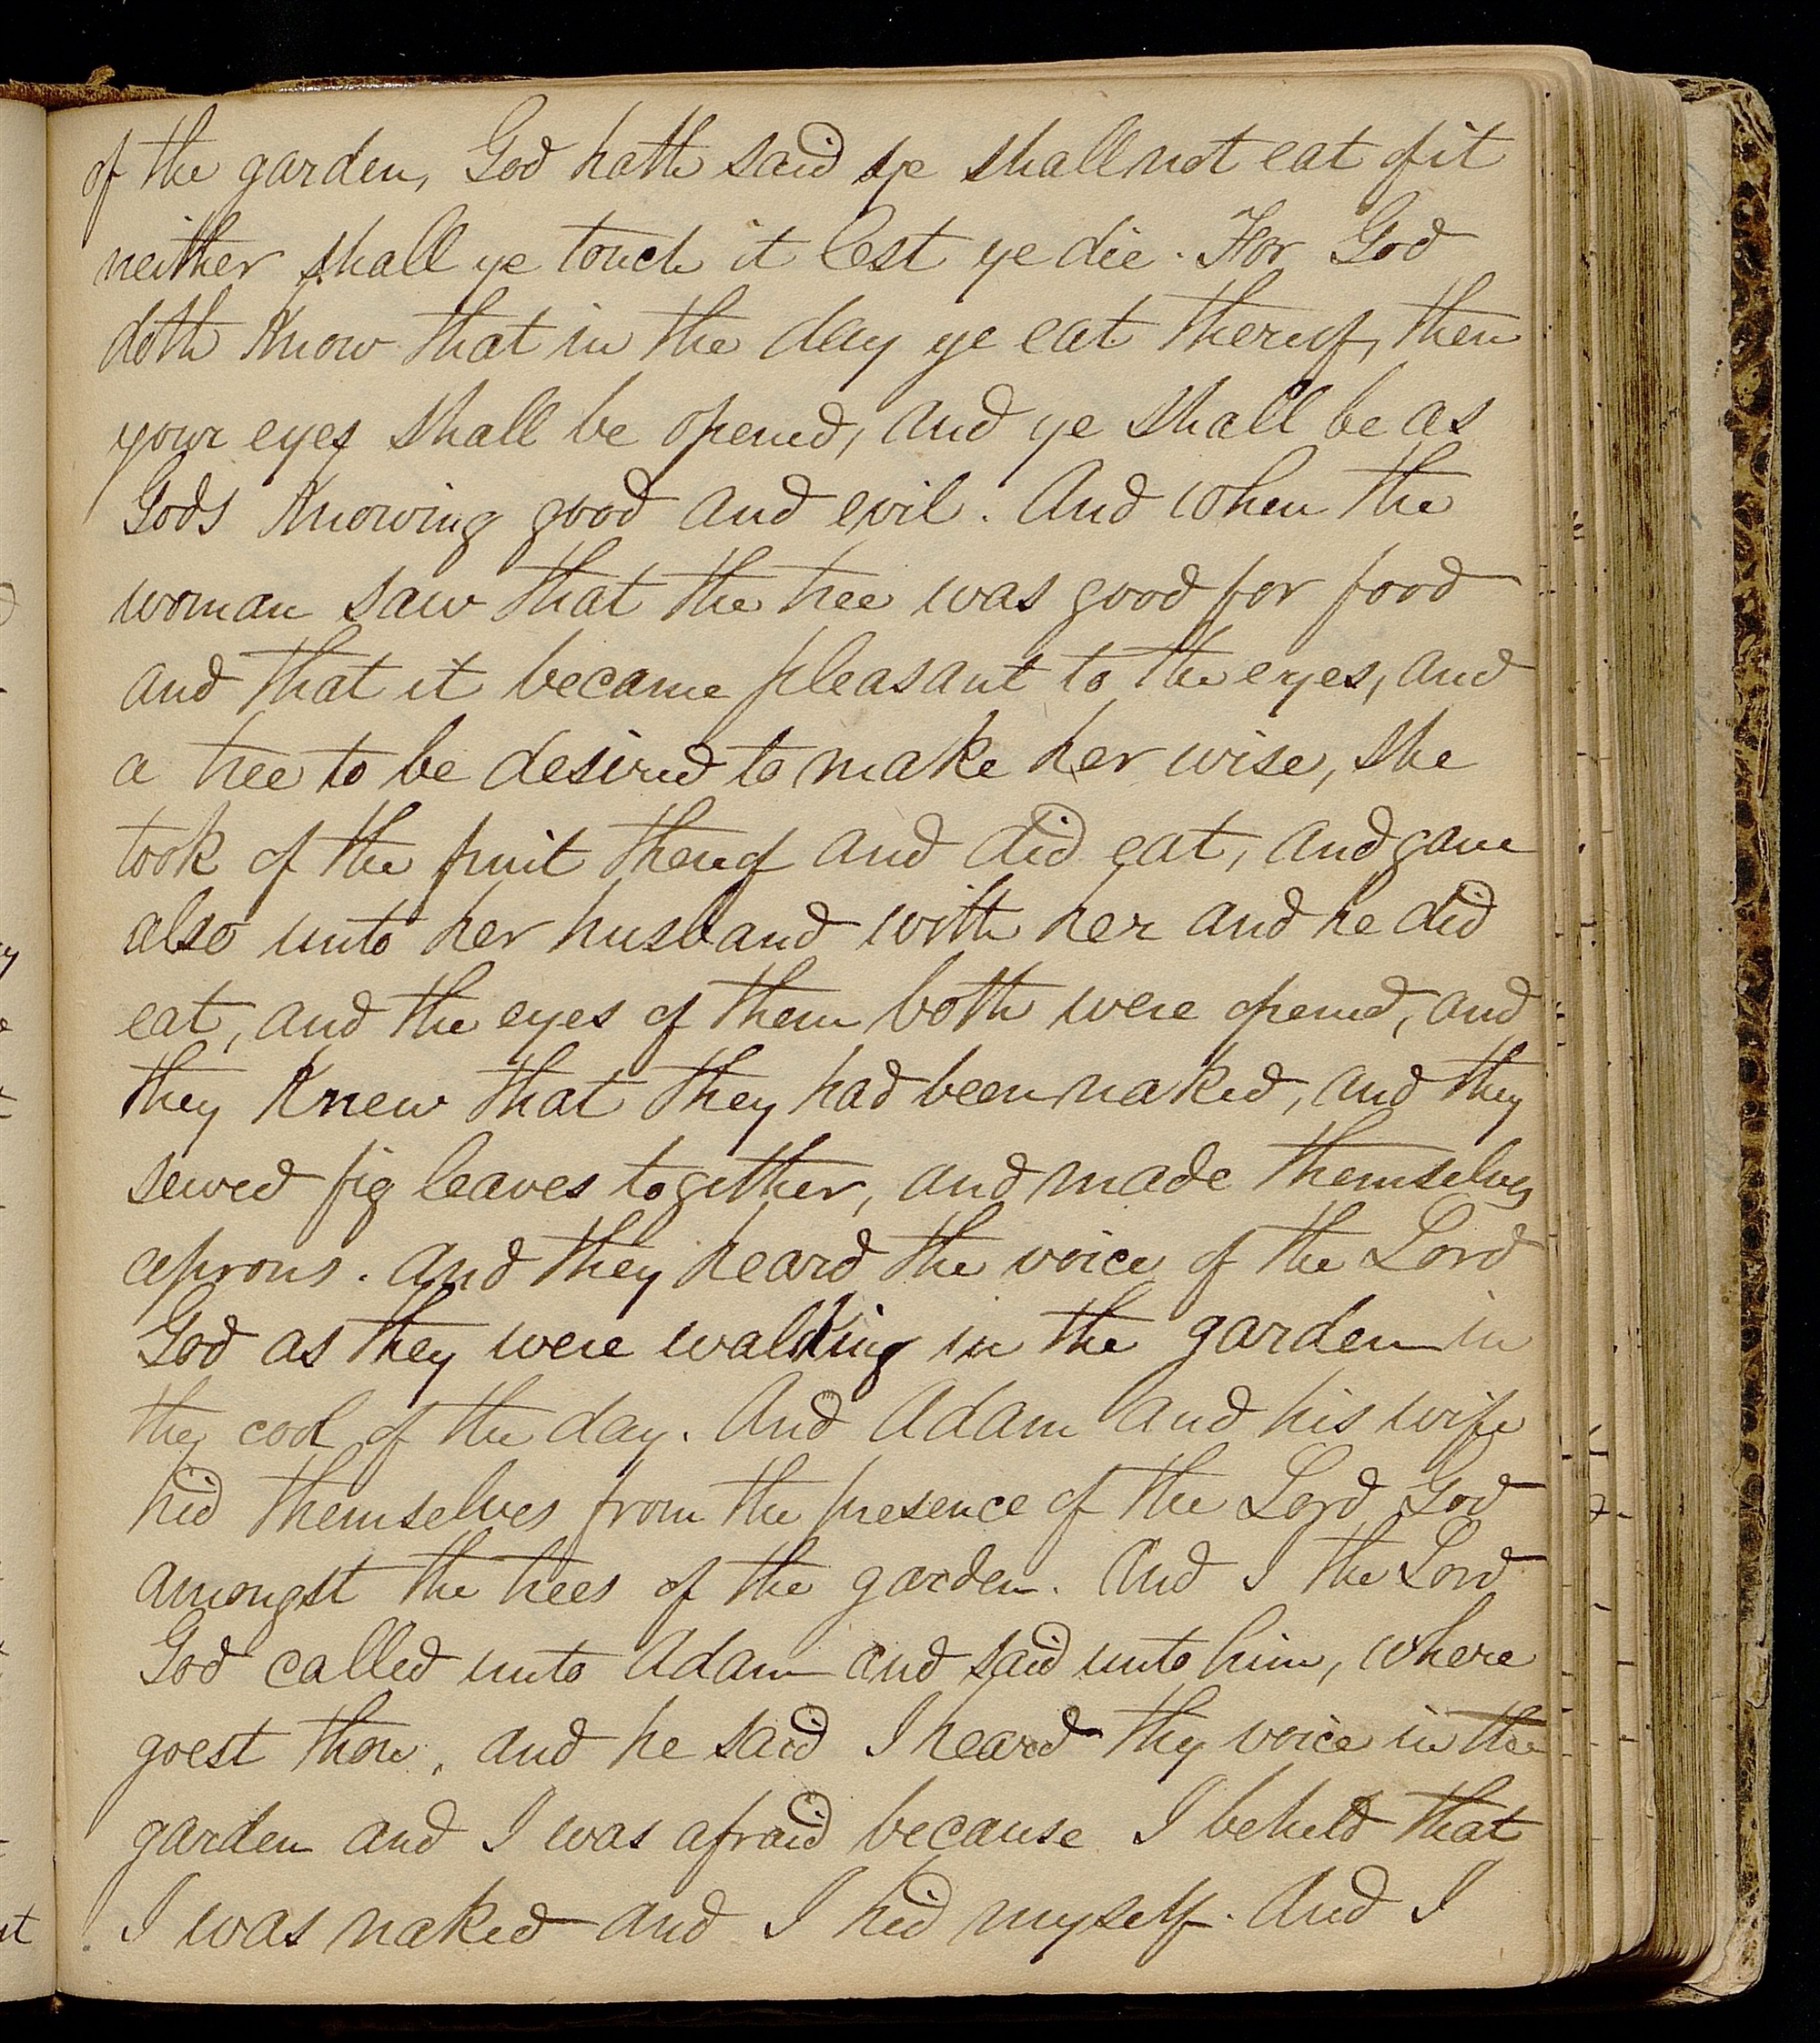 of the garden, God hath said ye shall not eat of it
neither shall ye touch it lest ye die. For God
doth know that in the day ye eat thereof, then
your eyes shall be opened, and ye shall be as
Gods knowing good and evil. And when the
woman saw that the tree was good for food
and that it became pleasant to the eyes, and
a tree to be desired to make her wise, she
took of the fruit thereof and did eat, and gave
also unto her husband with her and he did
eat, and the eyes of them both were opened, and
they knew that they had been naked, and they
sewed fig leaves together, and made themselves
aprons. And they heard the voice of the Lord
God as they were walking in the garden in
the cool of the day. And Adam and his wife
hid themselves from the presence of the Lord God
amongst the trees of the garden. And I the Lord
God called unto Adam and said unto him, where
goest thou, and he said I heard thy voice in the
garden and I was afraid because I beheld that
I was naked and I hid myself. And I